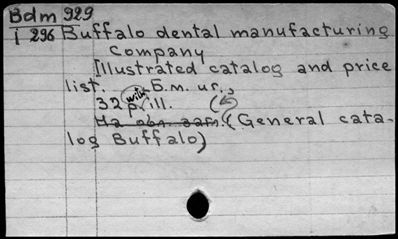 Bdm 929
I 296 Buffalo dental manufacturing
company
Illustrated catalog and price
list. Б.м. иг.,
32 p. with ill.
На обл. загл. (General cata-
log Buffalo)